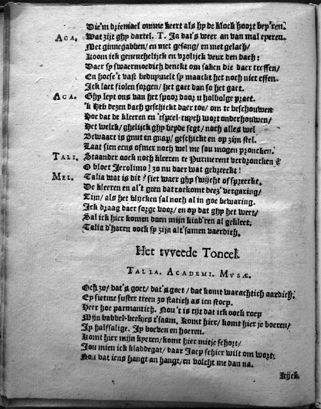 Die'm dziemael omme keert als hy de klock hoort bey'ren.
ACA. Wat zijt ghy dartel. T. Ja dat's weer an van mal eperen.
Met ginnegabben/ en met gesang/ en met gelach/
Koom ick geneuchelijck en vrolijck veur den dach:
Daer sp swaermoedich denckt om saken die daer treffen/
En hoese't vast beduyvelt sp maackt het noch niet effen.
Ick laet fiolen sorgen/ het gaet dan so het gaet.
ACA. Ghy lept ons van het spoor door u holbolge praet.
'k Heb dezen dach geschickt daer toe/ om te beschouwen
Hoe dat de kleeren en 't speel-tuych wort onderhouwen/
Het welck/ ghelijck ghy beyde segt/ noch alles wel
Bewaert is gnut en gnap/ geschickt en op zijn stel.
Laet sien eens ofmer noch wel me sou mogen proncken.
TALI. Staander oock noch kleeren te Purmerent verdroncken
O bloet Jerolimo! zo nu daer wat gebreckt!
MEL. Talia wat is dit? siet waer ghy swijcht of spreeckt,
De kleeren en al't geen dat toekomt deez' vergaring/
Zijn/ als het blijcken sal noch al in goe bewaring.
Ick draag daer sorge voor/ en op dat ghy het weet/
Sal ick hier komen doen mijn kind'ren al gekleet.
Talia d'haren oock sp zijn alt'samen vaerdich.
Het tweede Tooneel.
TALIA. ACADEMI. MUSÆ.
Och zo/ dat's goet/ dat's goet/ dat komt waerachtich aerdich:
Ey sietme suster treen zo statich as ien stoep.
Heer hoe parmantich. Nou't is tijd dat ick oock roep
Mijn babbel-beckjes t'saam, komt hier/ komt hier je boeren/
Jy halfsalige. Jy boeven en hoeren.
Komt hier mijn kyeren/ komt hier mitje schort/
Jou mien ick kladdegat/ daer Jaep schier wilt om wort:
Nou dat iens hangt an hangt/ en volcht me dan na.
Kijck